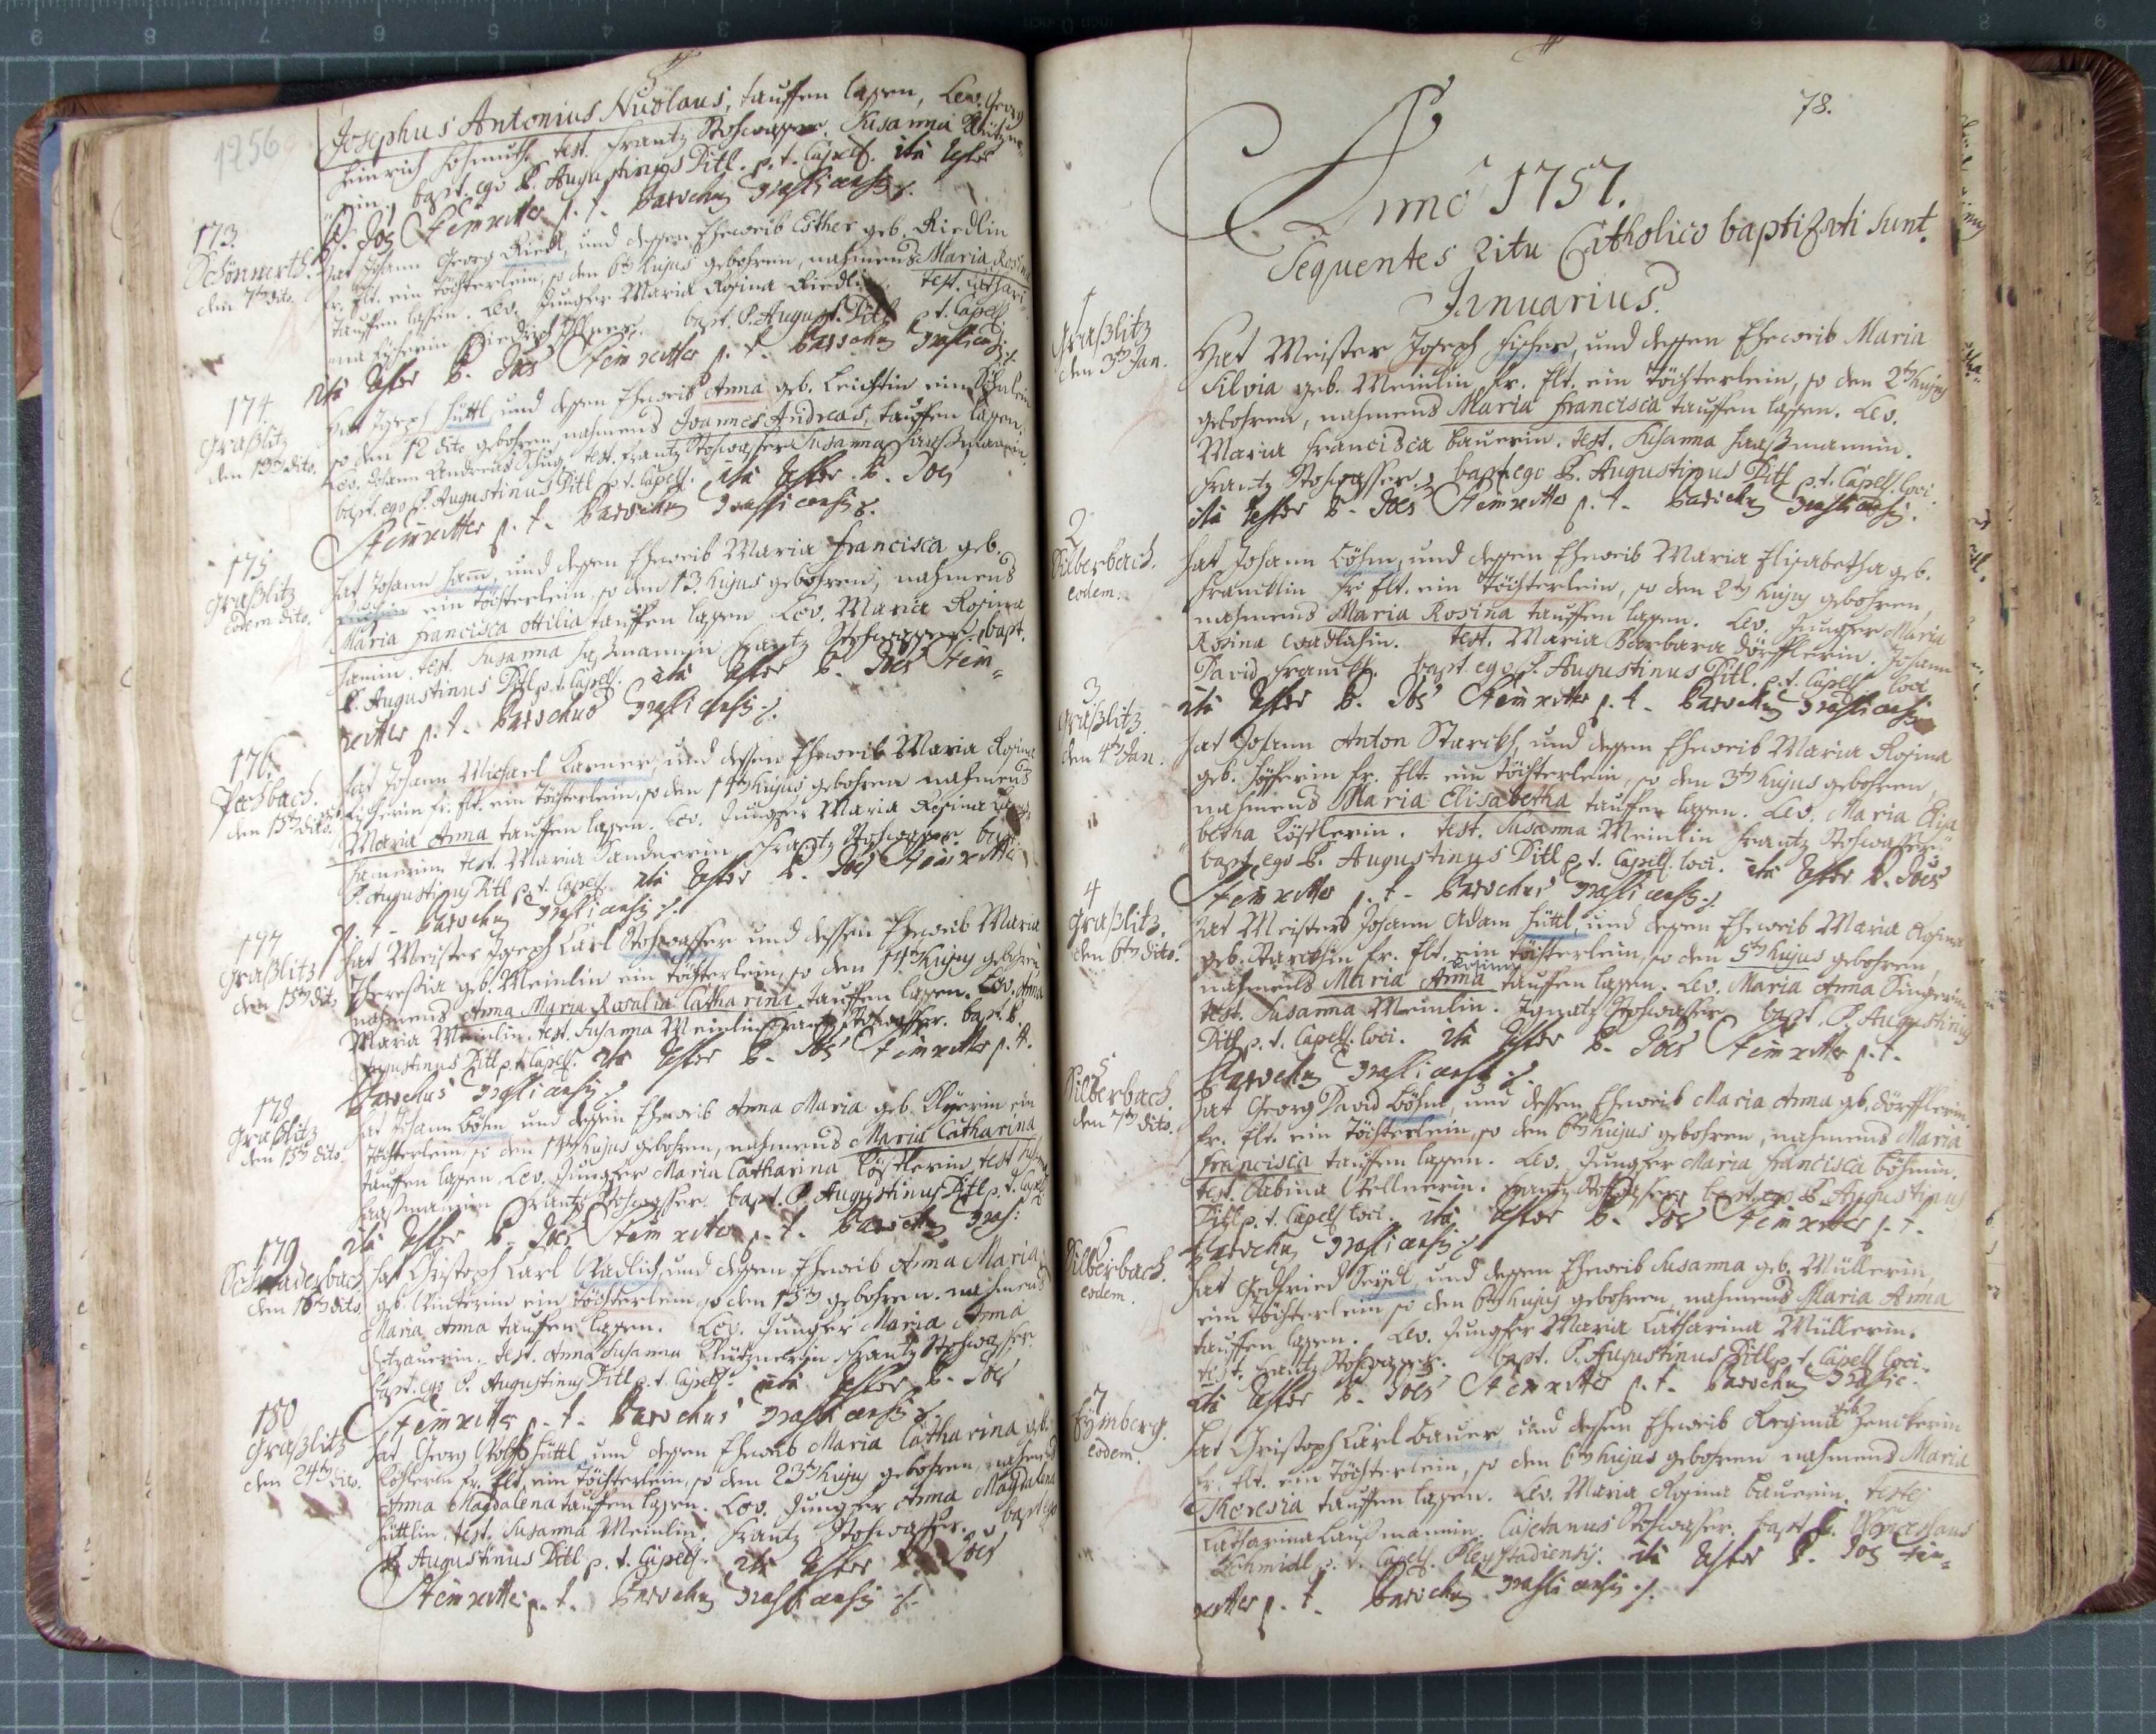 1756
Josephus Antonius Nicolaus, tauffen lassen, Lev. Georg
Heinrich Hohmuth, test. Frantz Stohwasser. Susanna
bapt. ego P. Augustinus Ditl. p. t. Capell. ita testor
P. Joes Steinritter p. t. Parochus Graslicensis
173.
Schönwerth.
den 7ten dito.
Hat Johann Georg Riedl, und dessen Eheweib Esther geb. Riedlin
fr. Elt. ein Töchterlein, so den 6ten hujus gebohren, nahmens Maria Rosina
tauffen lassen. Lev. Jungfer Maria Rosina Riedlin. test. Cathari-
na
bapt. P. August. Ditl p. t. Capell.
ita testor P. Joes Steinritter p. t. Parochus Grasticensis
174
Graßlitz
den 13ten dito.
Hat Joseph Hüttl, und dessen Eheweib Anna geb. Leichtin ein Söhnlein
so den 12 dito gebohren, nahmens Joannes Andreas, tauffen lassen,
Lev. Johann Andreas test. Frantz Stohwasser Susanna
bapt. ego P. Augustinus Ditl p. t. Capell. ita testor P. Joes
Steinritter p. t. Parochus Grasticensis
175
Graßlitz
eodem dito.
Hat Johann Ham, und dessen Eheweib Maria Francisca geb.
ein Töchterlein, so den 13. hujus gebohren, nahmens
Maria Francisca Ottilia tauffen lassen Lev. Maria Rosina
Hamin. test. Susanna Haßmannin Frantz Stohwasser. bapt.
P. Augustinus Ditl p. t. Capell. ita testor P. Joes Stein-
ritter p. t. Parochus Grasticensis
176.
Pechbach.
den 15ten dito.
Hat Johann Michael Karner, und dessen Eheweib Maria Rosina
fr. Elt. ein Töchterlein, so den 14ten hujus gebohren nahmens
Maria Anna tauffen lassen. Lev. Jungfer Maria Rosina
test. Maria Sandnerin, Frantz Stohwasser. bapt.
P. Augustinus Ditl p. t. Capell. ita testor P. Joes Steinritter
p. t. Parochus Grasticensis
177
Graßlitz
den 15ten dito
Hat Meister Joseph Carl Stohwasser und dessen Eheweib Maria
Theressia geb. Meinlin ein Töchterlein, so den 14ten hujus gebohren,
nahmens Anna Maria Rosalia Catharina tauffen lassen. Lev. Anna
Maria Meinlin. test. Susanna Meinlin Frantz Stohwasser. bapt. P.
Augustinus Ditl p. t. Capell. ita testor P. Joes Steinritter p. t.
Parochus Grasticensis
178
Graßlitz
den 15ten dito
Hat Johann Böhm und dessen Eheweib Anna Maria geb. ein
Töchterlein, so den 14ten hujus gebohren, nahmens Maria Catharina
tauffen lassen. Lev. Jungfer Maria Catharina Köstlerin test.
Haßmannin Frantz Stohwasser. bapt. P. Augustinus Ditl p. t. Capell.
ita testor P. Joes Steinritter p. t. Parochus Gras:
179
Schwaderbach
den 16ten dito.
Hat Christoph Carl Wadlich, und dessen Eheweib Anna Maria
geb. Winterin ein Töchterlein so den 15ten gebohren. nahmens
Maria Anna tauffen lassen. Lev. Jungfer Maria Anna
test. Anna Susanna Frantz Stohwasser
bapt. ego P. Augustinus Ditl p. t. Capell. ita testor P. Joes
Steinritter p. t. Parochus Grasticensis
180
Graßlitz
den 24ten dito.
Hat Georg Hüttl, und dessen Eheweib Maria Catharina geb.
Köstlerin fr. Elt. ein Töchterlein, so den 23ten hujus gebohren, nahmens
Anna Magdalena tauffen lassen. Lev. Jungfer Anna Magdalena
Hüttlin. test. Susanna Meinlin. Frantz Stohwasser. bapt. ego
P. Augustinus Ditl p. t. Capell. ita testor P. Joes
Steinritter p. t. Parochus Grasticensis
78.
Anno 1757.
Sequentes Ritu Catholico baptizati sunt.
Januarius.
1
Graßlitz
den 3ten Jan.
Hat Meister Joseph Fischer, und dessen Eheweib Maria
Silvia geb. Meinlin fr. Elt. ein Töchterlein, so den 2ten hujus
gebohren, nahmens Maria Francisca tauffen lassen. Lev.
Maria Francisca Bauerin. test. Susanna Haaßmannin.
Frantz Stohwasser. bapt. ego P. Augustinus Ditl p. t. Capell. loci.
ita testor P. Joes Steinritter p. t. Parochus Grasticensis.
2
Silberbach.
eodem.
Hat Johann Böhm, und dessen Eheweib Maria Elisabetha geb.
Francklin fr. Elt. ein Töchterlein, so den 2ten hujus gebohren,
nahmens Maria Rosina tauffen lassen. Lev. Jungfer Maria
Rosina Wadlichin. test. Maria Barbara Dörfflerin. Johann
David Franckl. bapt. ego P. Augustinus Ditl. p. t. Capell loci
ita testor P. Joes Steinritter p. t. Parochus Grasticensis
3
Graßlitz
den 4ten Jan.
Hat Johann Anton Starckh, und dessen Eheweib Maria Rosina
geb. fr. Elt. ein Töchterlein, so den 3ten hujus gebohren,
nahmens Maria Elisabetha tauffen lassen. Lev. Maria Elisa
betha Köstlerin. test. Susanna Meinlin Frantz Stohwasser.
bapt. ego P. Augustinus Ditl p. t. Capell. loci. ita testor P. Joes
Steinritter p. t. Parochus Grasticensis
4
Graßlitz.
den 6ten dito.
Hat Meister Johann Adam Hüttl, und dessen Eheweib Maria Rosina
geb. Starckin fr. Elt. ein Töchterlein, so den 5ten hujus gebohren,
nahmens Maria Anna Rosina tauffen lassen. Lev. Maria Anna Singerin
test. Susanna Meinlin. Ignatz Stohwasser. bapt. P. Augustinus
Ditl p. t. Capell. loci. ita testor P. Joes Steinritter p. t.
Parochus Grasticensis
5
Silberbach
den 7ten dito.
Hat Georg David Böhm, und dessen Eheweib Maria Anna geb. Dörfflerin,
fr. Elt. ein Töchterlein, so den 6ten hujus gebohren, nahmens Maria
Francisca tauffen lassen. Lev. Jungfer Maria Francisca Böhmin.
test. Sabina Kellnerin. Frantz Stohwasser. bapt. ego P. Augustinus
Ditl p. t. Capell loci. ita testor P. Joes Steinritter p. t.
Parochus Grasticensis
6
Silberbach.
eodem.
Hat Godfried Seydl, und dessen Eheweib Susanna geb. Müllerin,
ein Töchterlein so den 6ten hujus gebohren, nahmens Maria Anna
tauffen lassen. Lev. Jungfer Maria Catharina Müllerin.
test. Frantz Stohwasser. bapt. P. Augustinus Ditl p. t. Capell loci.
ita testor P. Joes Steinritter p. t. Parochus Grastic.
7
Eÿmberg.
eodem.
Hat Christoph Carl Bauer und dessen Eheweib Regina geb. Zenckerin
fr. Elt. ein Töchterlein, so den 6ten hujus gebohren nahmens Maria
Theresia tauffen lassen. Lev. Maria Rosina Bauerin. testes
Catharina Haußmannin. Cajetanus Stohwasser. bapt. P. Wenceslaus
Schmidl p. t. Capell. Pleystadiensis. ita testor P. Joes Stein-
ritter p. t. Parochus Grasticensis